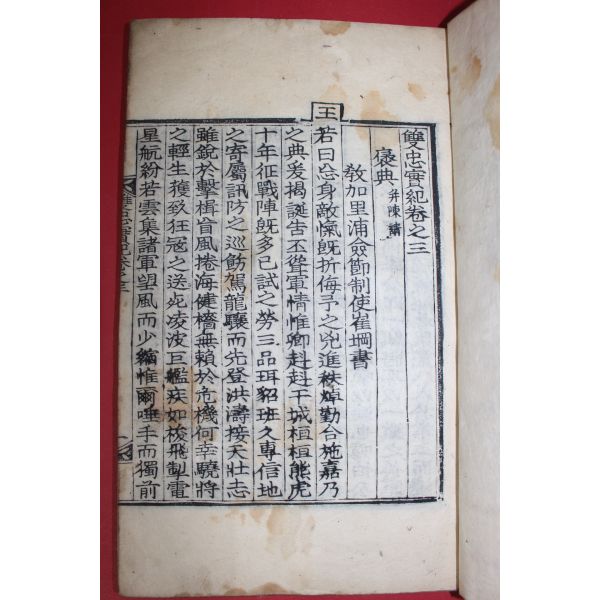 雙忠實紀卷之三
褒典 并陳籲
教加里浦僉節制使崔堈書
王
若曰忘身敵愾旣折侮予之兇進秩焯勤合施嘉乃
之典爰揭誕告丕聳軍情惟卿赳赳干城桓桓熊虎
十年征戰陣旣多已試之勞三品珥貂班久專信地
之寄屬訊防之巡飭駕龍驤而先登洪濤接天壯志
雖銳於擊楫盲風捲海健檣無賴於危機何幸驍將
之輕生獲致狂寇之送死凌波巨艦疾如梭飛制電
星航紛若雲集諸軍望風而少縮惟爾唾手而獨前
雙忠實紀卷之三
一